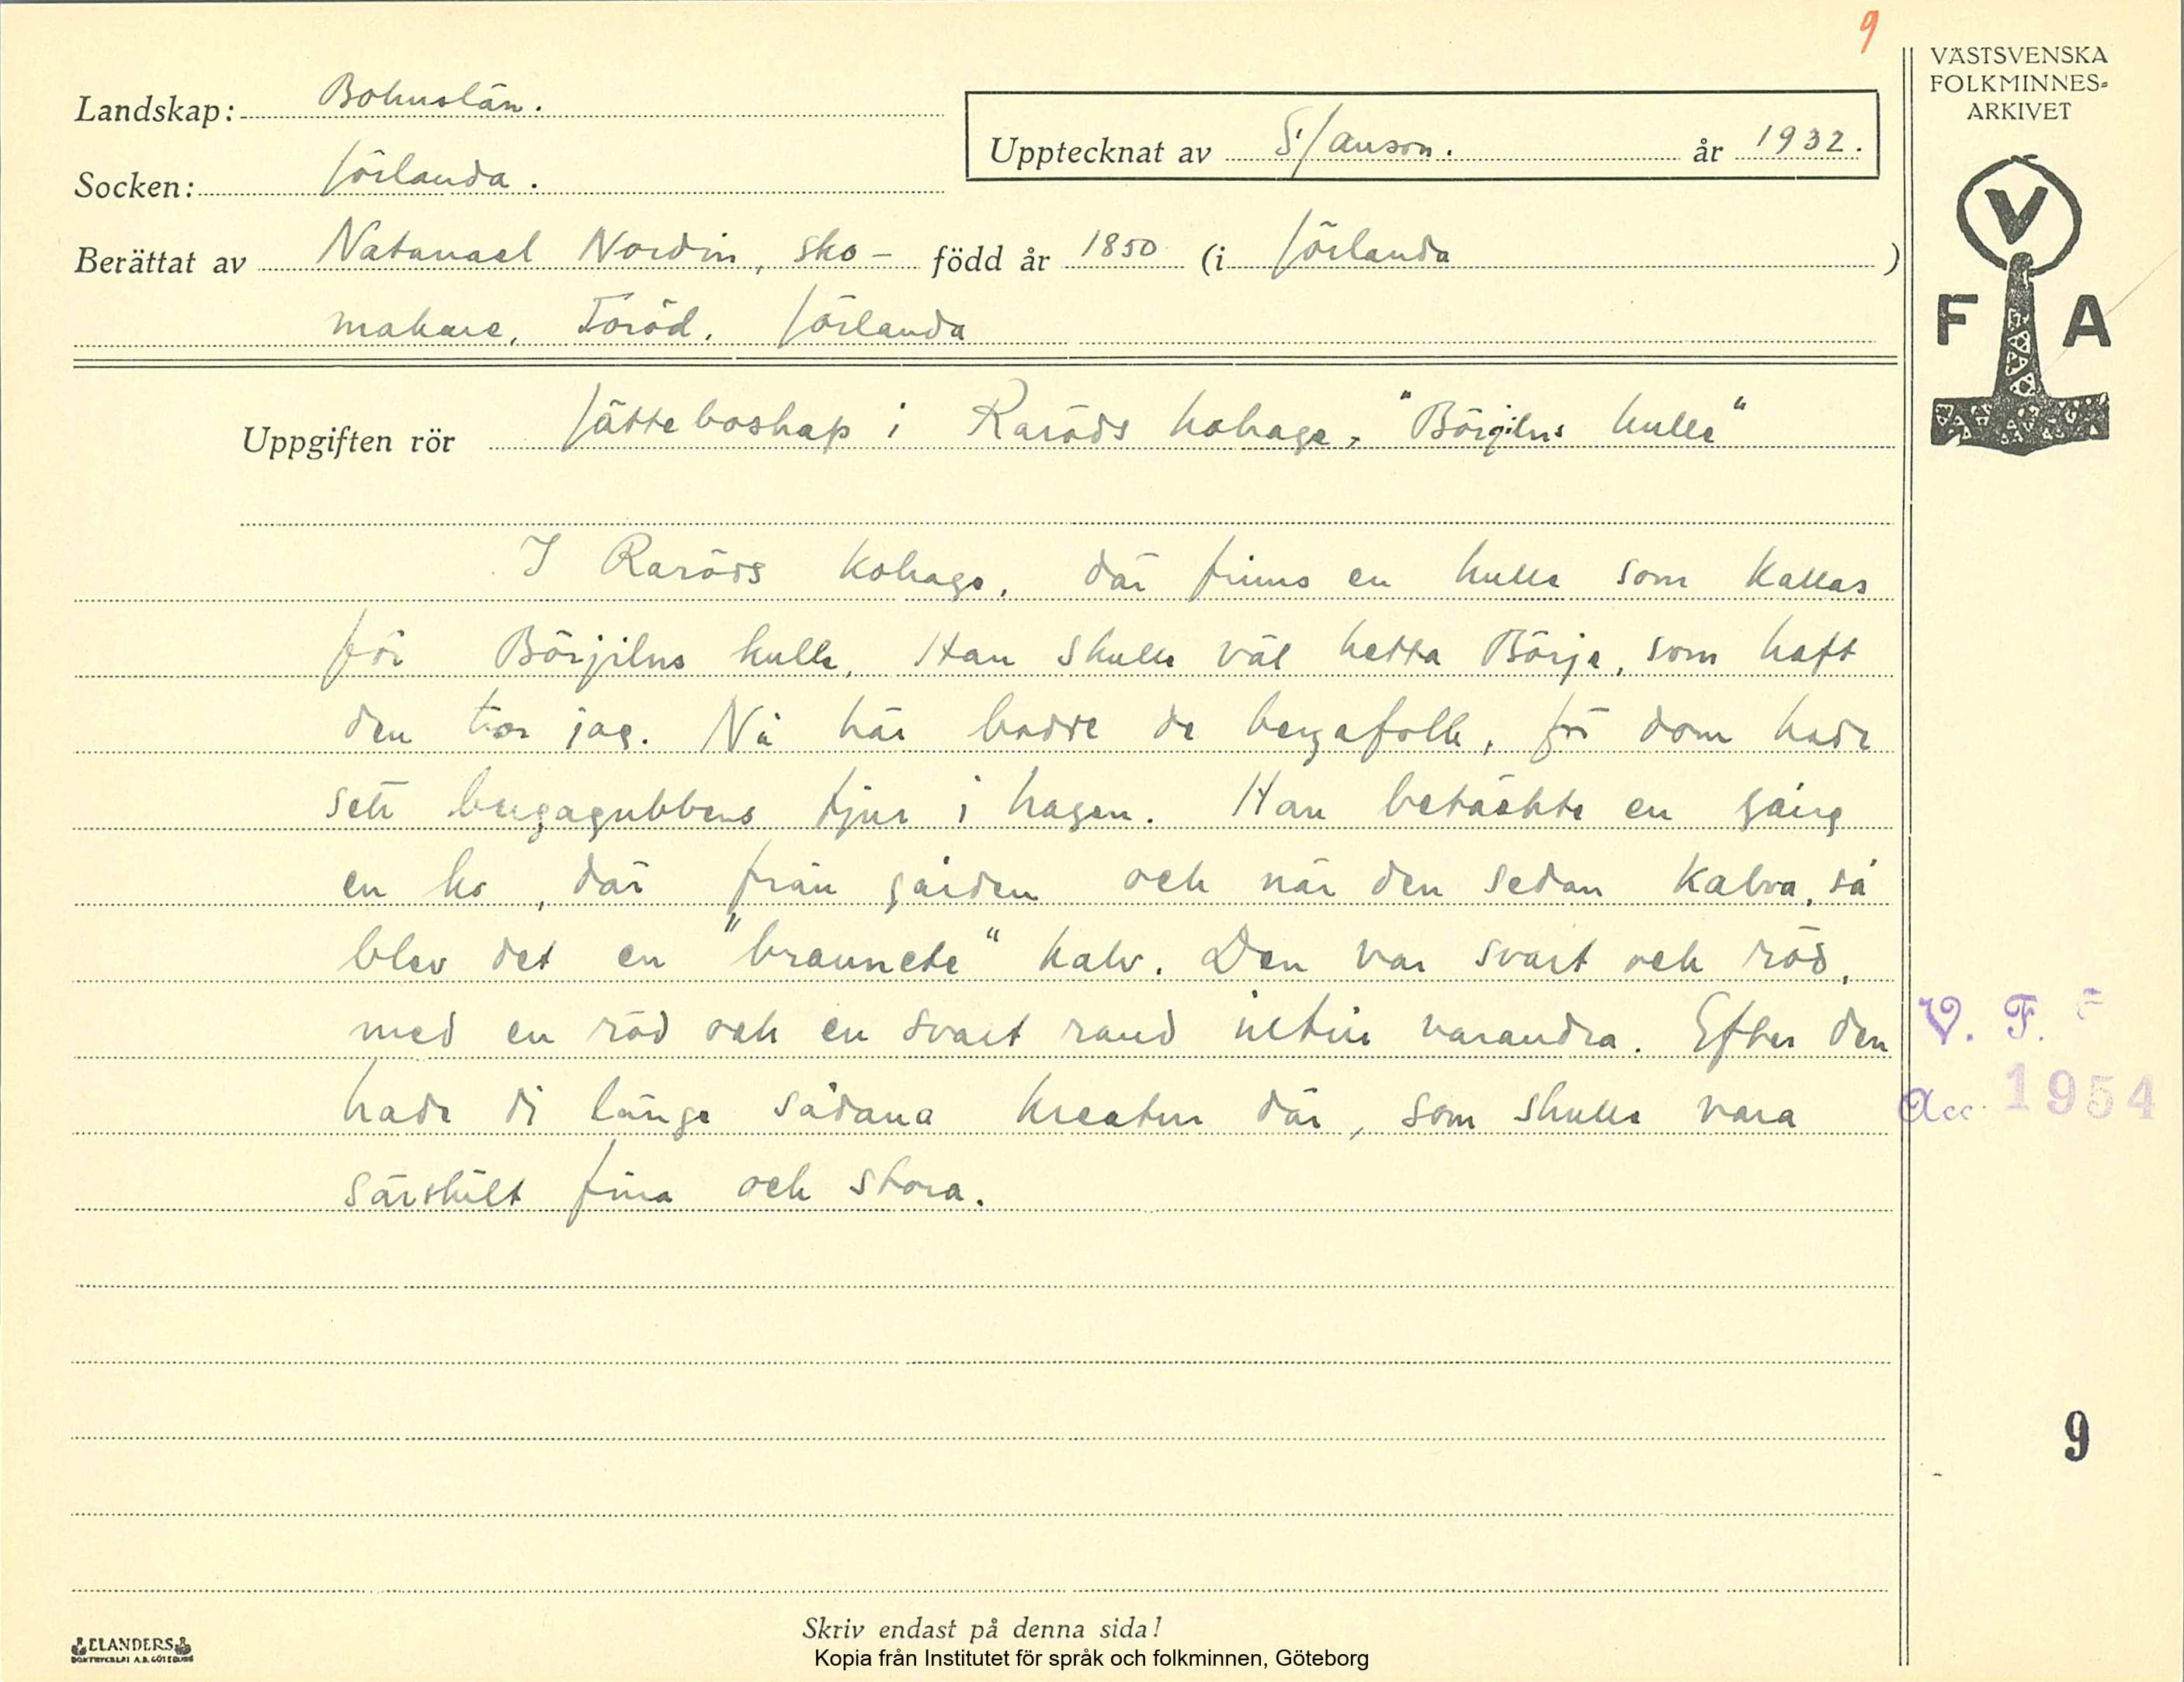 9
VÄSTSVENSKA
FOLKMINNES-
ARKIVET
Landskap: Bohuslän.
Upptecknat av S. Janson. år 1932.
Socken: Jörlanda.
Berättat av Natanael Nordin, sko- född år 1850 (i Jörlanda)
makare, Toröd, Jörlanda
V
F A
Uppgiften rör Jätteboskap i Raröds kohage, "Börjilns kulle"
I Raröds kohage, där finns en kulle som kallas
för Börjilns kulle. Han skulle väl hetta Börje, som haft
den tror jag. Nå här bodde de bergafolk, för dom hade
sett bergagubbens tjur i hagen. Han betäckte en gång
en ko, där från gården och när den sedan kalva, så
blev det en "braunete" kalv. Den var svart och röd,
med en röd och en svart rand intill varandra. Efter den
hade di länge sådana kreatur där, som skulle vara
särskilt fina och stora.
V. F.
Acc. 1954
9
Skriv endast på denna sida!
ELANDERS
BOKTRYCKERI A.B. GÖTEBORG
Kopia från Institutet för språk och folkminnen, Göteborg